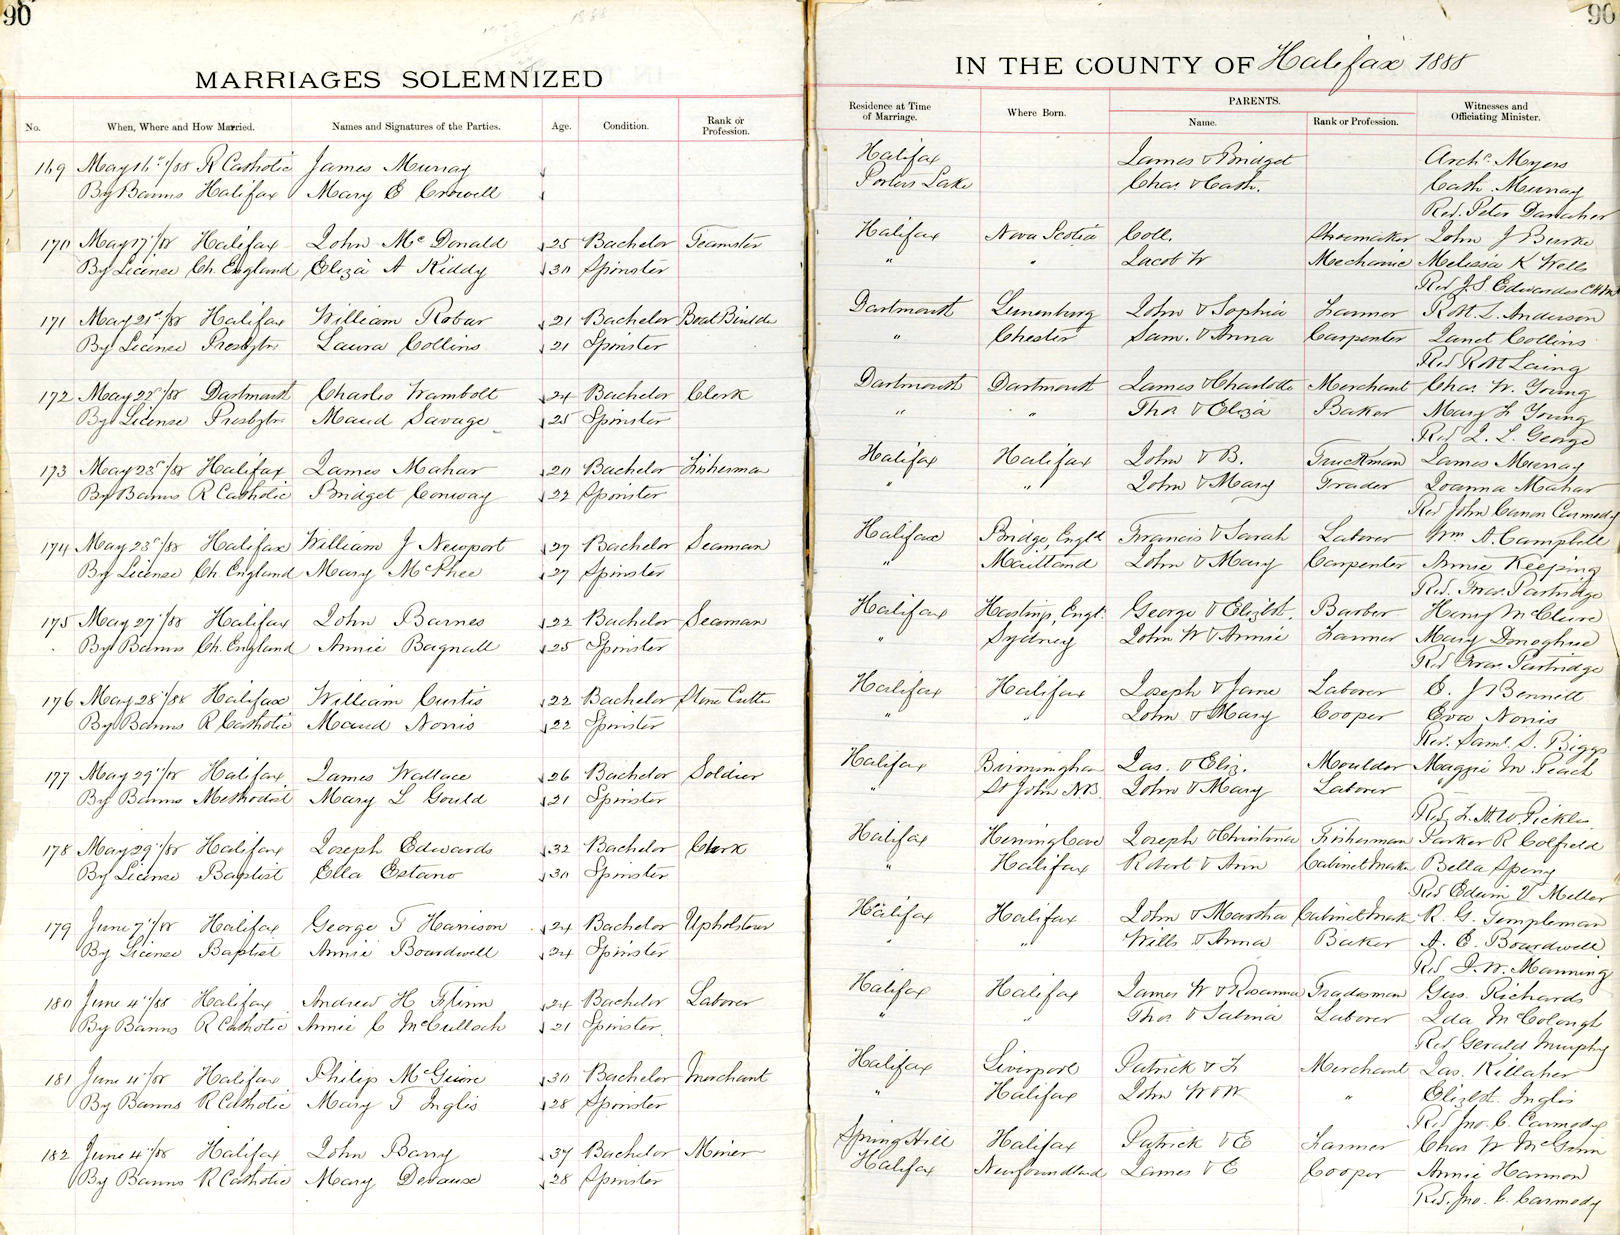 90
MARRIAGES SOLEMNIZED
No. When, Where and How Married. Names and Signatures of the Parties. Age. Condition. Rank or Profession.
169 May 16th/88 R Catholic James Murray
By Banns Halifax Mary E Crowell
170 May 17th/88 Halifax John McDonald 25 Bachelor Teamster
By License Ch. England Eliza A Kiddy 30 Spinster
171 May 21st/88 Halifax William Robar 21 Bachelor Boat Builder
By License Presbytn Laura Collins 21 Spinster
172 May 22d/88 Dartmouth Charles Wambolt 24 Bachelor Clerk
By License Presbytn Maud Savage 25 Spinster
173 May 23d/88 Halifax James Mahar 20 Bachelor Fisherman
By Banns R Catholic Bridget Conway 22 Spinster
174 May 23d/88 Halifax William J Newport 27 Bachelor Seaman
By License Ch. England Mary McPhee 27 Spinster
175 May 27th/88 Halifax John Barnes 22 Bachelor Seaman
By Banns Ch. England Annie Bagnall 25 Spinster
176 May 28th/88 Halifax William Curtis 22 Bachelor Stone Cutter
By Banns R Catholic Maud Norris 22 Spinster
177 May 29th/88 Halifax James Wallace 26 Bachelor Soldier
By Banns Methodist Mary L Gould 21 Spinster
178 May 29th/88 Halifax Joseph Edwards 32 Bachelor Clerk
By License Baptist Ella Estano 30 Spinster
179 June 7th/88 Halifax George T Harrison 24 Bachelor Upholsterer
By License Baptist Annie Boardwell 24 Spinster
180 June 4th/88 Halifax Andrew H Flinn 24 Bachelor Laborer
By Banns R Catholic Annie C McCulloch 21 Spinster
181 June 4th/88 Halifax Philip McGuire 30 Bachelor Merchant
By Banns R Catholic Mary T Inglis 28 Spinster
182 June 4th/88 Halifax John Barry 37 Bachelor Miner
By Banns R Catholic Mary Devaux 28 Spinster
90
IN THE COUNTY OF Halifax 1888
Residence at Time of Marriage. Where Born. PARENTS. Name. Rank or Profession. Witnesses and Officiating Minister.
Halifax James & Bridget Archd. Myers
Porters Lake Chas & Cath. Cath. Murray
Rev. Peter Danaher
Halifax Nova Scotia Coll. Shoemaker John J Burke
" " Jacob W Mechanic Melissa K Wells
Rev J. S Edwardes
Dartmouth Lunenburg John & Sophia Farmer Robt. L. Anderson
" Chester Sam. & Anna Carpenter Janet Collins
Rev R M Laing
Dartmouth Dartmouth James & Charlotte Merchant Chas. W. Young
" " Thos & Eliza Baker Mary F Young
Rev J. L. George
Halifax Halifax John & B. Truckman James Murray
" " John & Mary Trader Joanna Mahar
Rev John Canon Carmody
Halifax Bridge, Engld Francis & Sarah Laborer Wm A. Campbell
" Maitland John & Mary Carpenter Annie Keeping
Rev. Fras. Partridge
Halifax Hastings, Engl. George & Elizbt. Barber Henry McClure
" Sydney John W & Annie Farmer Mary Donoghue
Rev Fras. Partridge
Halifax Halifax Joseph & Jane Laborer E. J Bennett
" " John & Mary Cooper Eva Norris
Rev. Saml. S. Biggs
Halifax Birmingham Jas. & Eliz. Moulder Maggie M Peach
" St John N.B. John & Mary Laborer
Rev F. H. W. Pickles
Halifax Herring Cove Joseph & Christinia Fisherman Parker R Colfield
" Halifax Robert & Ann Cabinet Maker Bella Spery
Rev Edwin D Miller
Halifax Halifax John & Martha Cabinet Mak R. G. Templeman
" " Wills & Anna Baker A. E. Boardwell
Rev J. W. Manning
Halifax Halifax James W & Rosanna Tradesman Gus. Richards
" " Thos & Sabina Laborer Ida McColough
Rev Gerald Murphy
Halifax Liverpool Patrick & F Merchant Jas. Killaher
" Halifax John W & W " Elizbt. Inglis
Rev Jno. C. Carmody
Spring Hill Halifax Patrick & E Farmer Chas W McGinn
Halifax Newfoundland James & E Cooper Annie Hannon
Rev. Jno. C. Carmody